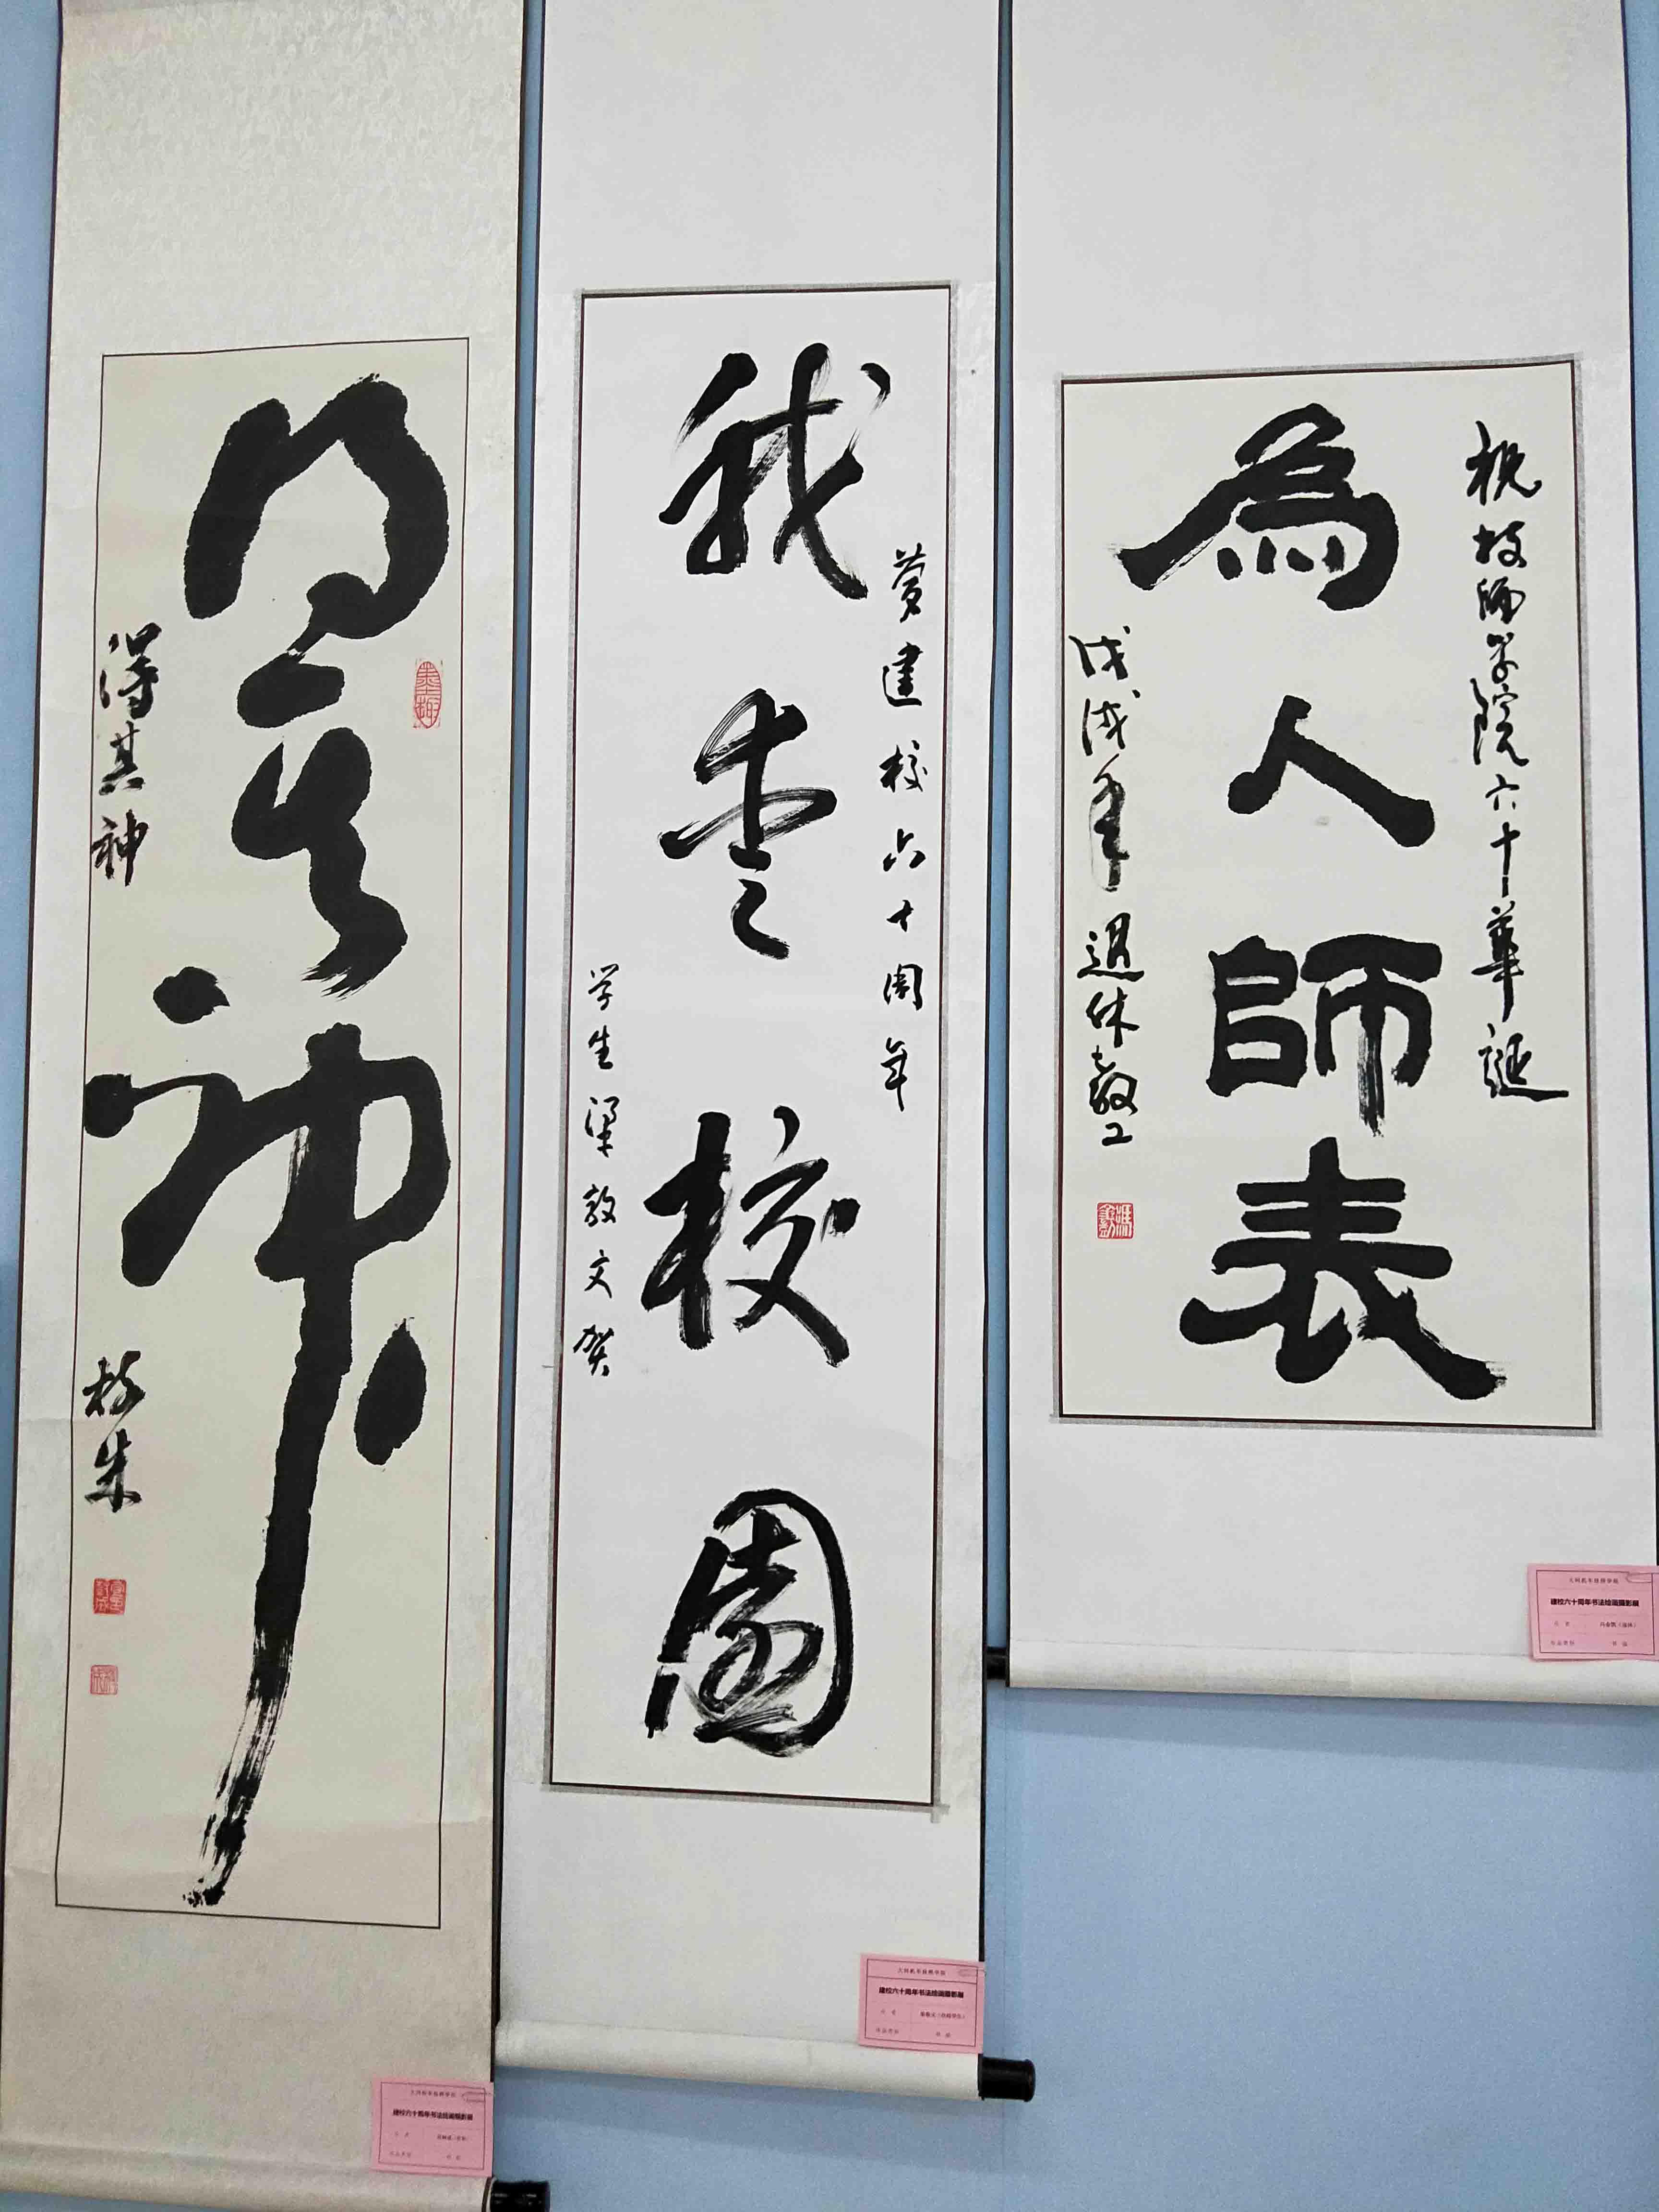 得其神
得其神
我爱校园
建校六十周年
学生梁敦文贺
祝技师学院六十華誕
為人師表
戊戌年退休教工
建校六十周年书法绘画摄影展
建校六十周年书法绘画摄影展
建校六十周年书法绘画摄影展